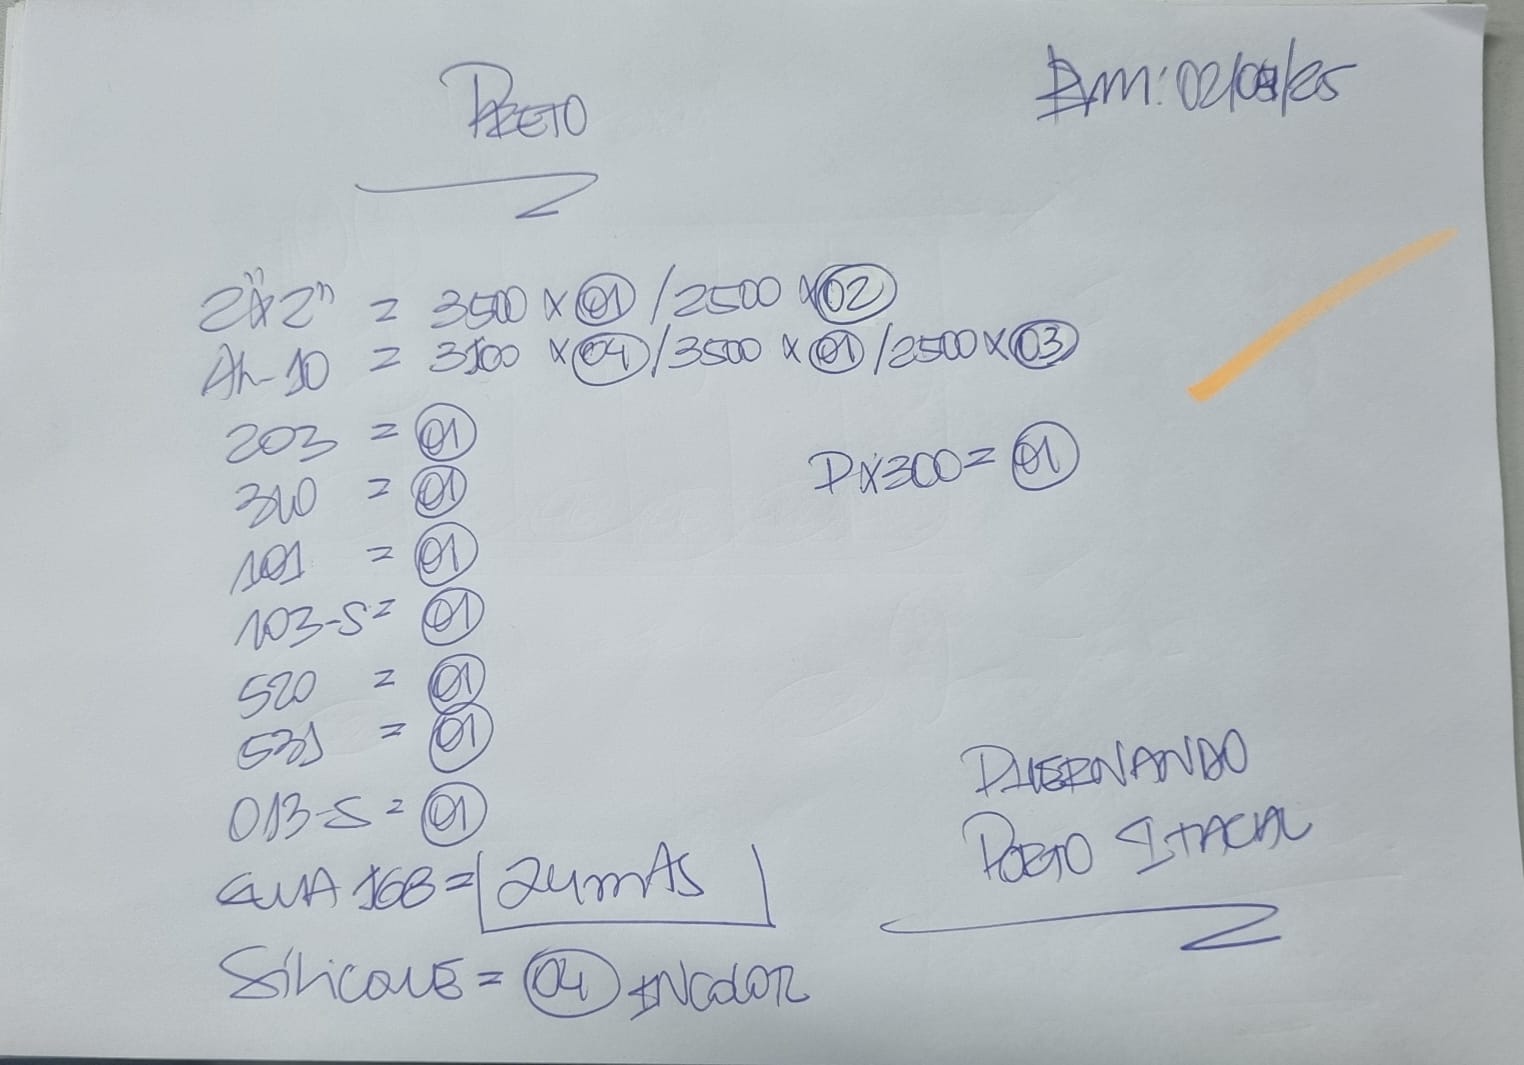 PRETO
EM: 02/08/25
2"x2" = 3500 x 01 / 2500 x 02
AL-10 = 3100 x 04 / 3500 x 01 / 2500 x 03
203 = 01
DX300 = 01
310 = 01
101 = 01
103-S = 01
520 = 01
531 = 01
013-S = 01
168 = 24mts
SiLicONE = 04 INColOR
DHERNANDO
PORTO